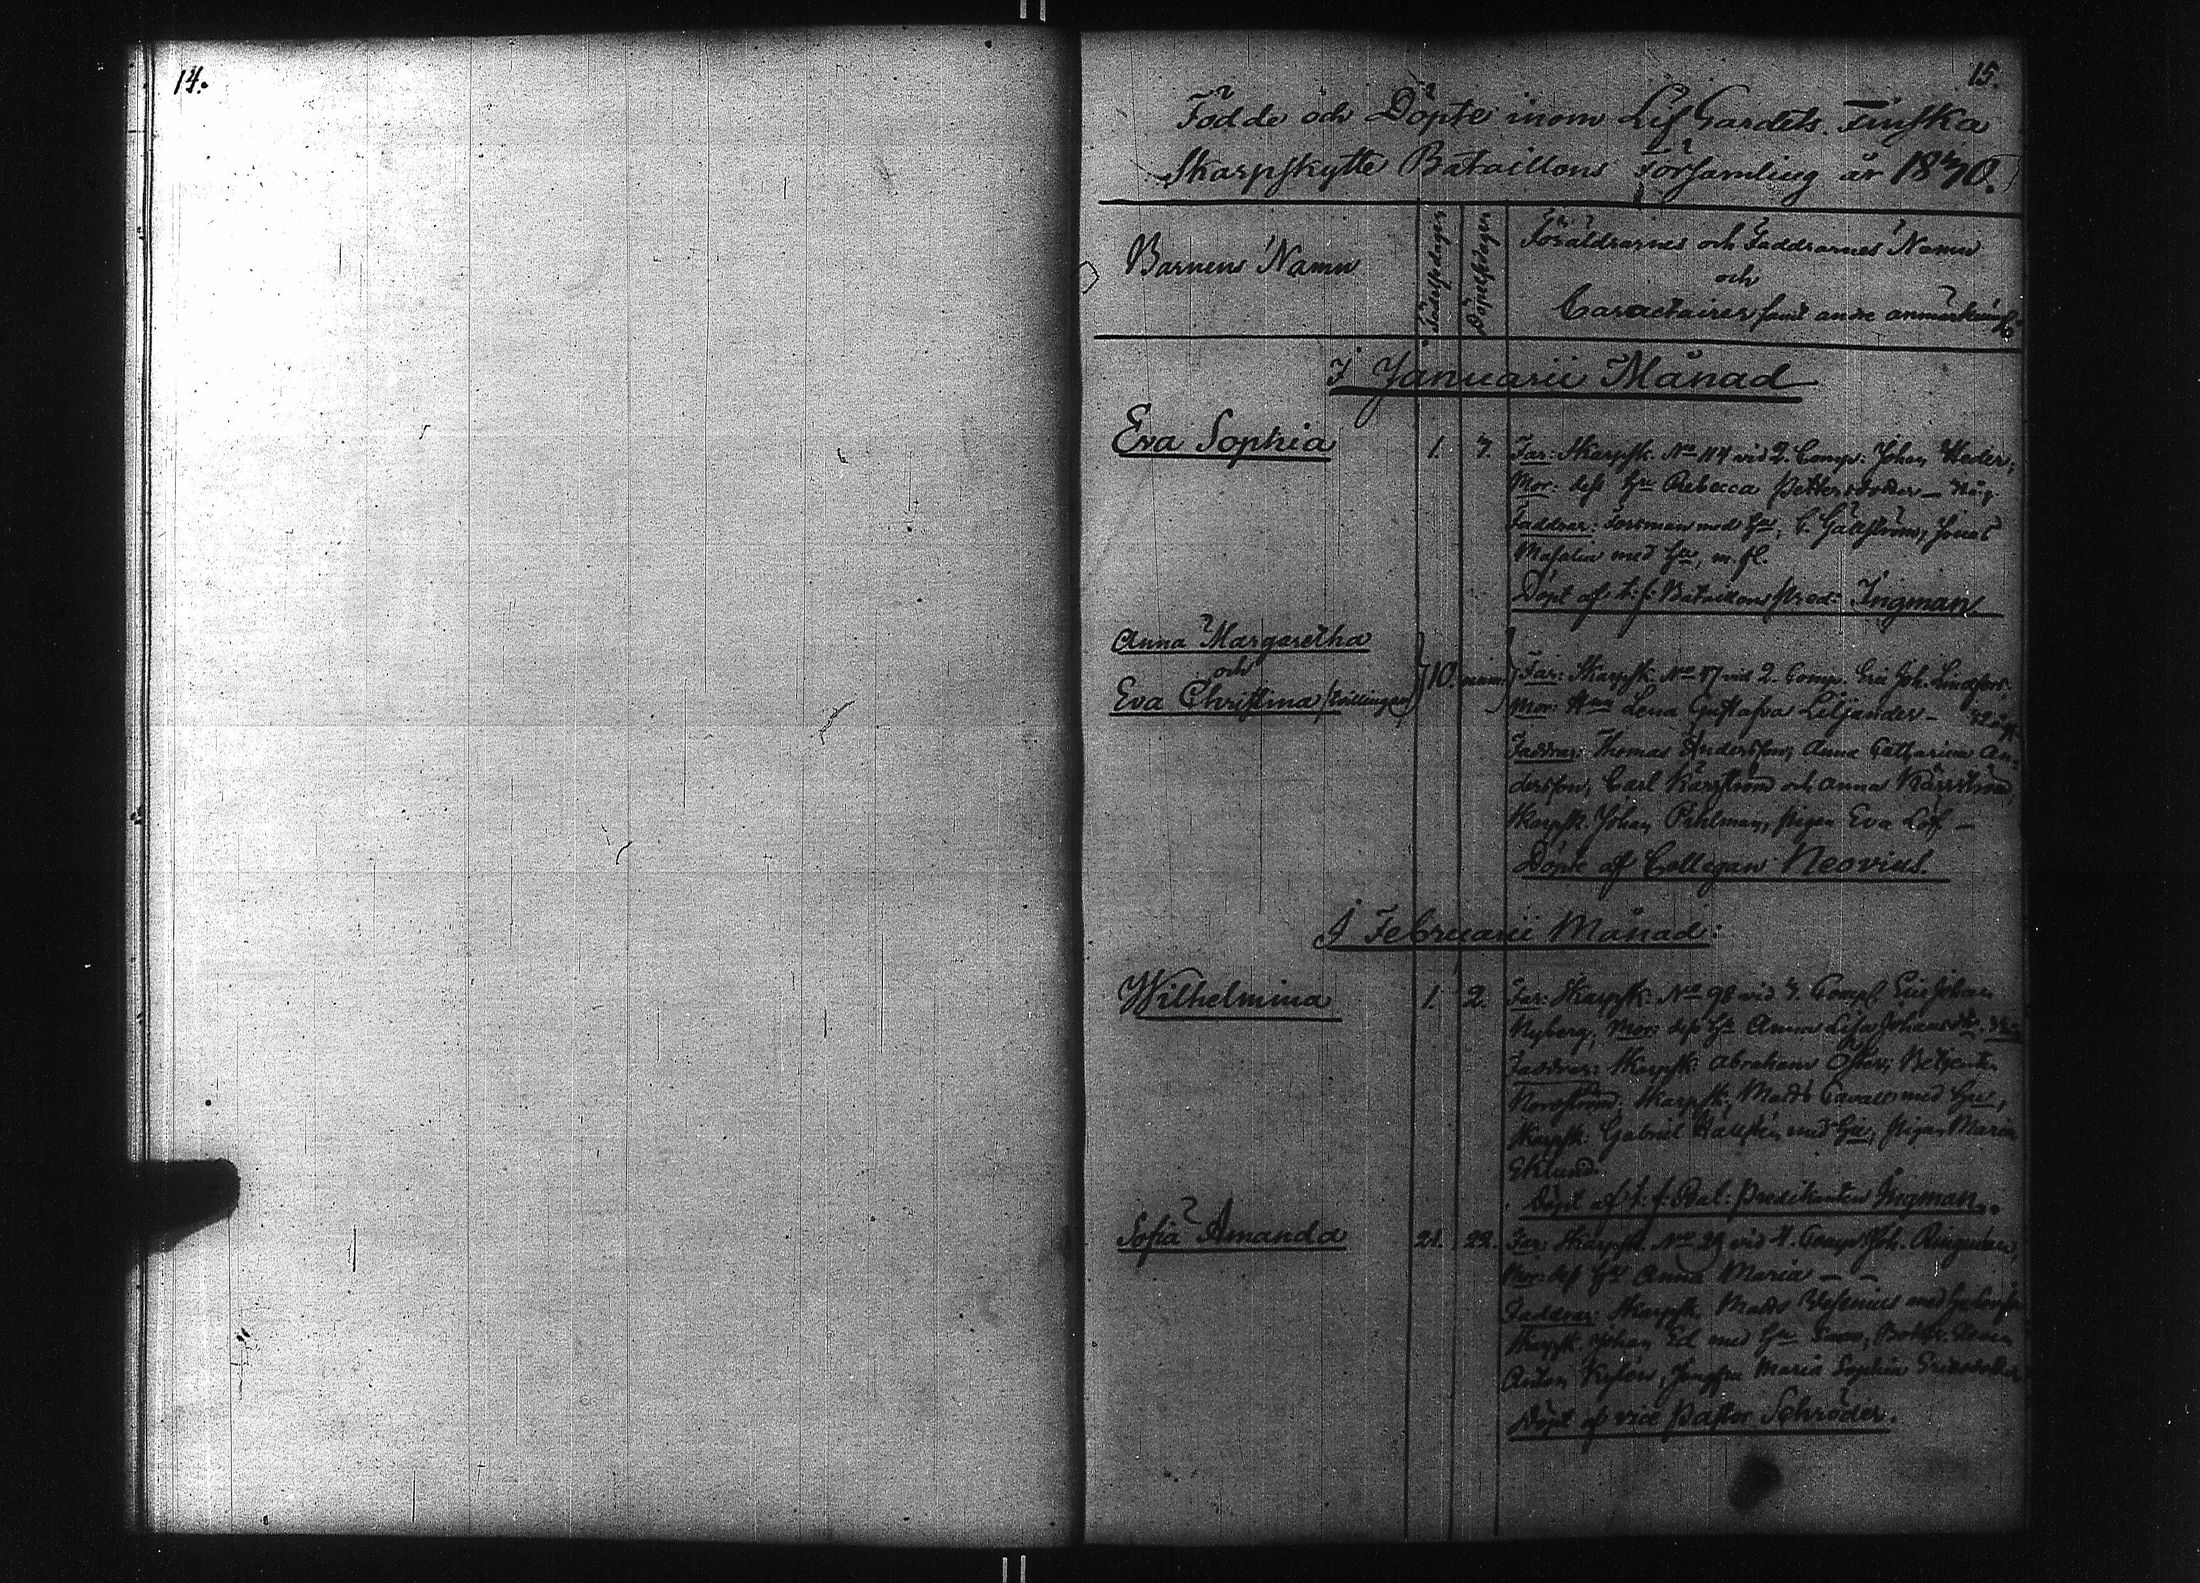 14.
15.
Födde och Döpte inom Lif Gardets Finska
Skarpskytte Bataillons Församling år 1830.
Barnens Namn
Födelsedagar
Döpelsedagar
Föräldrarnes och Faddrarnes Namn
och
Caractairer samt andre anmärkning:
I Januarii Månad
Eva Sophia 1. 7. Far: Skarpsk. No 114 vid 2. Comp. Johan
Mor: dess Hu Rebecca Pettersdotter
Faddrar: Forsman med Hu, C. Gällström, Jonas
Maselin med Hu, m. fl.
Döpt af t. f. Bataillons pred: Ingman
Anna Margaretha
och
Eva Christina (tvillingar) 10. Far: Skarpsk. No 17 vid 2. Comp. Eric Joh. Lindfors.
Mor: Lena Gustafva Liljander
Faddrar: Thomas Andersson, Anna Catharina An-
dersson, Carl Kärrström och Anna Kärrström,
Skarpsk. Johan Pihlman, pigan Eva Löf —
Döpte af Collegan Neovius.
I Februarii Månad:
Wilhelmina 1. 2. Far: Skarpsk: No 98 vid 3. Comp. Eric Johan
Nyberg, Mor: dess Hu Anna Lisa Johansdr.
Faddrar: Skarpsk: Abraham Öster, Betjenten
Norrström, Skarpsk: Matts Cavall med Hu,
Skarpsk: Gabriel Källsten med Hu, pigan Maria
Eklund.
Döpt af t. f. Bat: Predikanten Ingman.
Sofia Amanda 21. 22. Far: Skarpsk. No 29 vid 4. Comp Joh.
Mor: dess Hu Anna Maria — —
Faddrar: Skarpsk. Matts med
Skarpsk. Johan Ek med Hu
Kylén, Jungfru Maria Sophia
Döpt af vice Pastor Schröder.